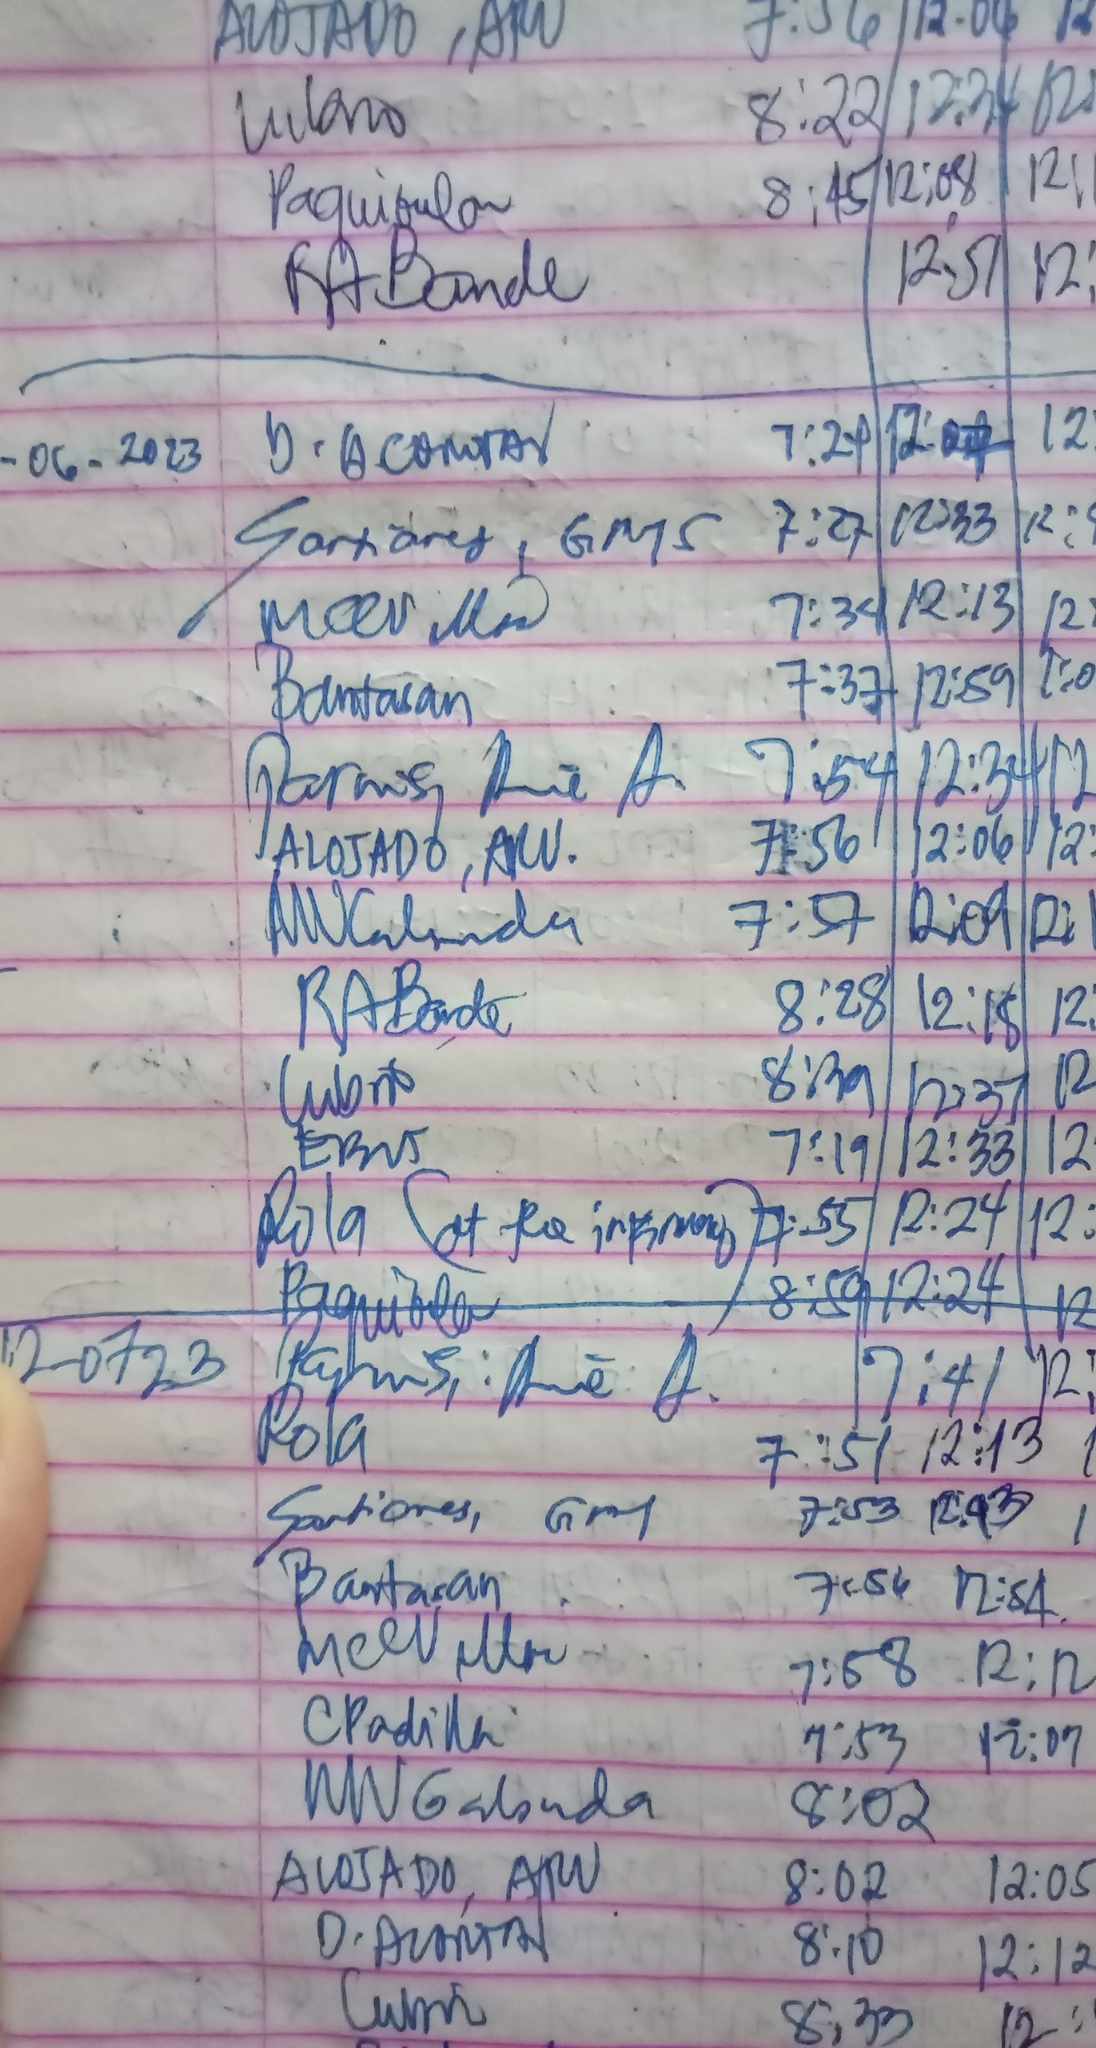 ALOJADO, ARV 7:56 12:06 12
8:22 12:34 12
Paquibulan 8:45 12:08 12:1
RA Bande 12:51 12:
-06-2023 D. ACANTAR 7:24 12: 12:
Santiones, GMS 7:27 12:33 12:
MCCVillon 7:34 12:13 12
Bantasan 7:37 12:59 1:0
A. 7:54 12:34 12
ALOJADO, ARV. 7:56 12:06 12:
NWGalsuda 7:57 12:09 12:1
RABande 8:28 12:18 12:
8:39 12:37 12
7:19 12:33 12
Rola (at the infirmary) 7:55 12:24 12:
8:59 12:24 12
12-0723 A. 7:41 12:
Rola 7:51 12:13 1
Santiones, GM 7:53 1
Bantasan 7:54 12:54
MCCVillon 7:58 12:12
CPadilla 7:53 12:07
NWGalsuda 8:02
ALOJADO, ARV 8:02 12:05
D. ACANTAR 8:10 12:12
8:33 12: